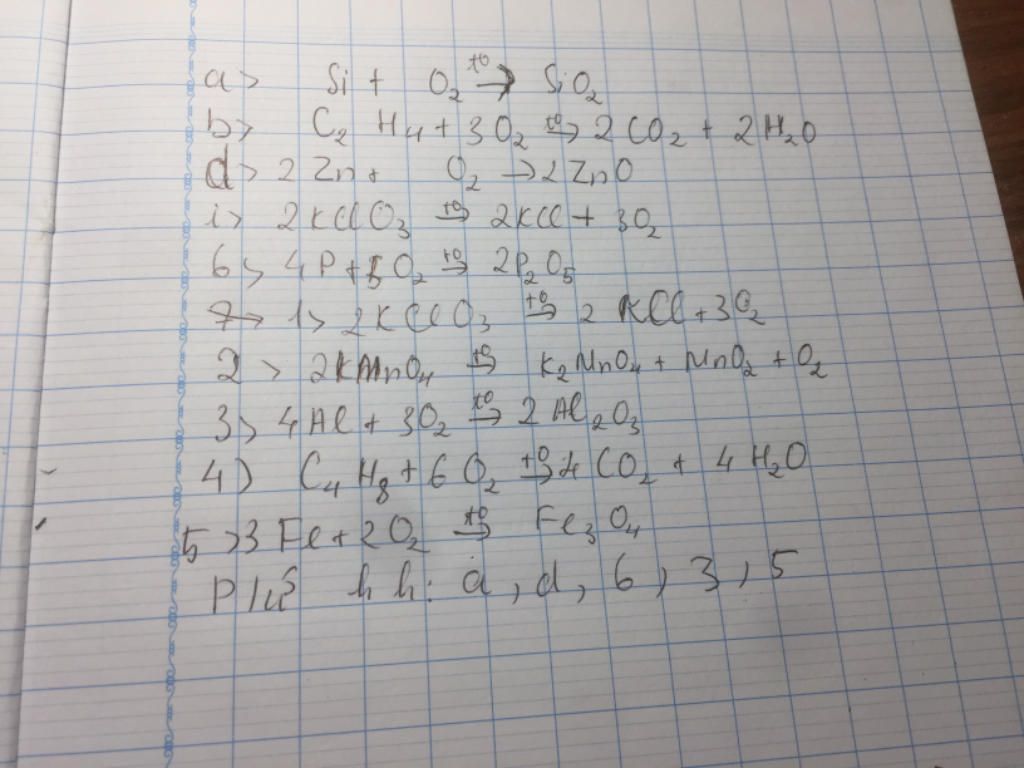 a> Si + O₂ t⁰→ SiO₂
b> C₂H₄ + 3O₂ t⁰→ 2CO₂ + 2H₂O
d> 2Zn + O₂ → 2ZnO
i> 2KClO₃ t⁰→ 2KCl + 3O₂
6> 4P + 5O₂ t⁰→ 2P₂O₅
1> 2KClO₃ t⁰→ 2KCl + 3O₂
2> 2KMnO₄ t⁰→ K₂MnO₄ + MnO₂ + O₂
3> 4Al + 3O₂ t⁰→ 2Al₂O₃
4) C₄H₈ + 6O₂ t⁰→ 4CO₂ + 4H₂O
5> 3Fe + 2O₂ t⁰→ Fe₃O₄
P/ứ h h: a, d, 6, 3, 5